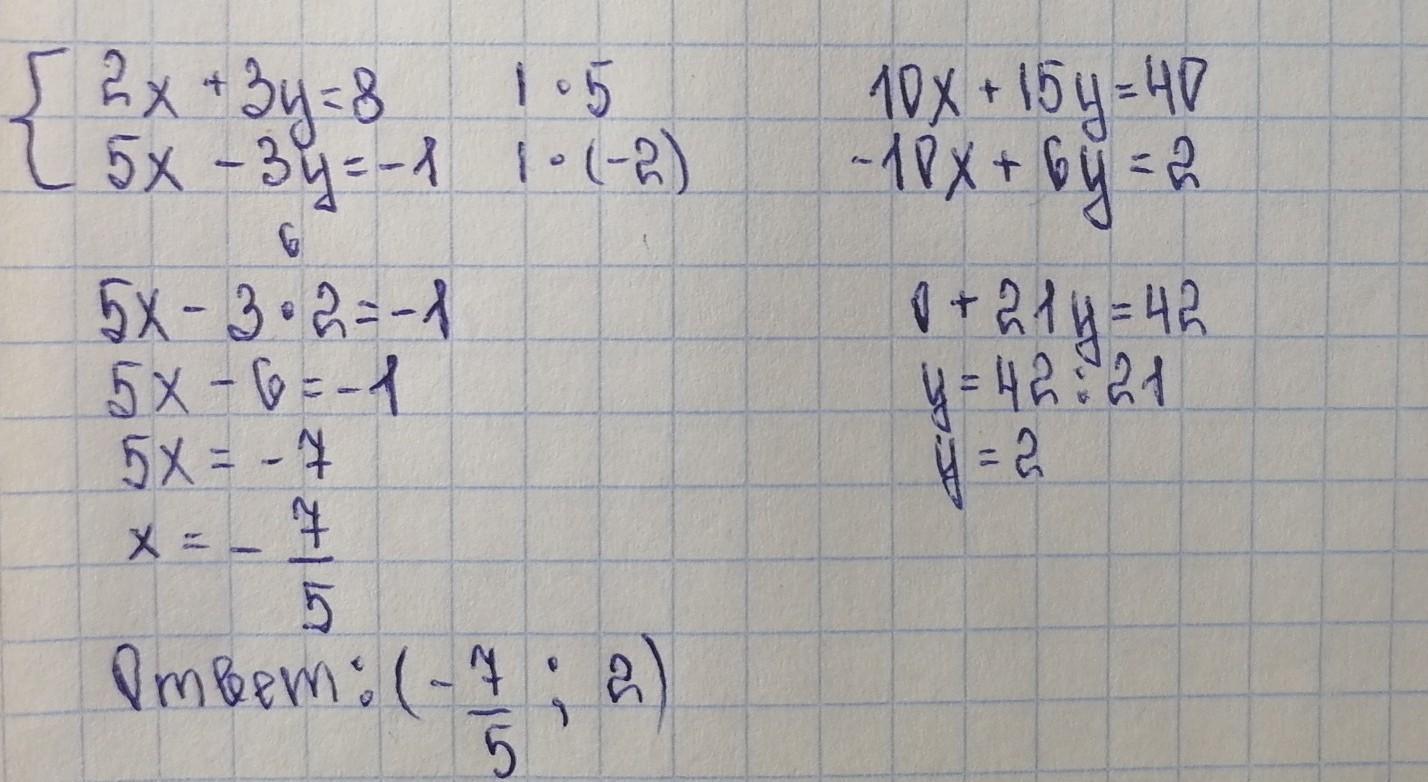 { 2x + 3y = 8 | · 5 10x + 15y = 40
5x - 3y = -1 | · (-2) -10x + 6y = 2
6
5x - 3 · 2 = -1 0 + 21y = 42
5x - 6 = -1 y = 42 : 21
5x = -7 y = 2
x = - 7/5
Ответ: (- 7/5 ; 2)